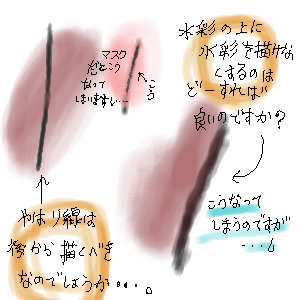 水彩の上に
水彩を描けな
くするのは
どーすれば
良いのですか？
マスク
だとこう
なって
しまいますし…
こう
こうなって
しまうのですが
…。
やはり線は
後から描くべき
なのでしょうか…。